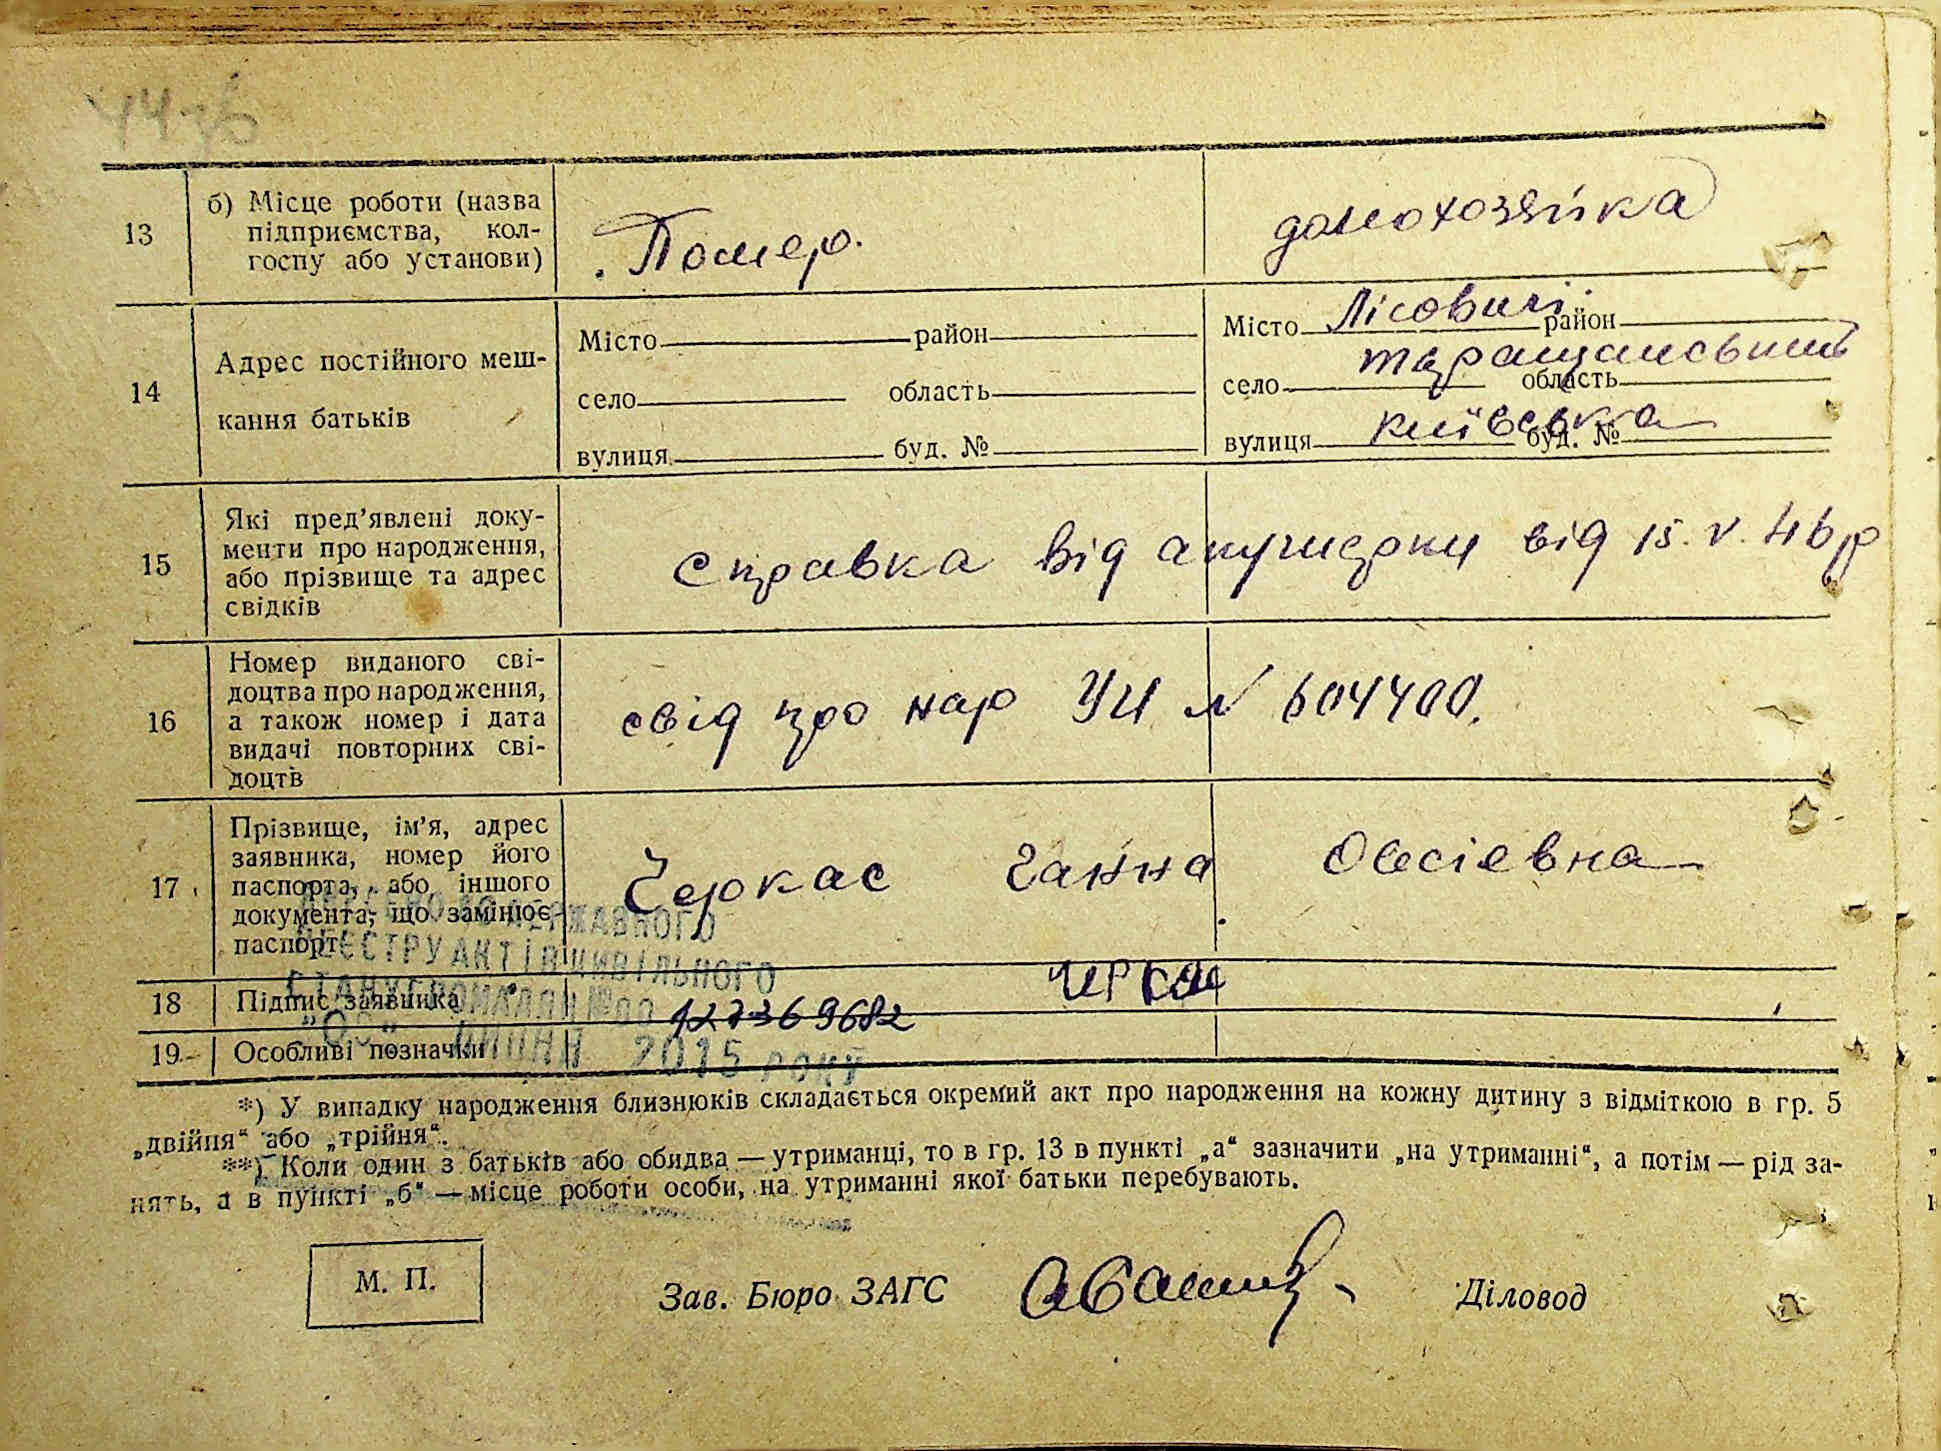 44 зв
13
б) Місце роботи (назва
підприємства, кол-
госпу або установи)
Помер.
домохозяйка
14
Адрес постійного меш-
кання батьків
Місто район
село область
вулиця буд. №
Місто Лісовичі район
село таращанський область
вулиця київська буд. №
15
Які пред’явлені доку-
менти про народження,
або прізвище та адрес
свідків
справка від акушерки від 15.V.46 р
16
Номер виданого сві-
доцтва про народження,
а також номер і дата
видачі повторних сві-
доцтв
свід про нар УЧ № 604400.
17
Прізвище, ім’я, адрес
заявника, номер його
паспорта, або іншого
документа, що замінює
паспорт
Черкас Ганна Овсіевна
ДЕРЖАВНОГО
РЕЄСТРУ АКТІВ ЦИВІЛЬНОГО
СТАНУ ГРОМАДЯН №00 127369682
ЛИПНЯ 2015 РОКУ
18 Підпис заявника
19 Особливі позначки
*) У випадку народження близнюків складається окремий акт про народження на кожну дитину з відміткою в гр. 5
„двійня“ або „трійня“.
**) Коли один з батьків або обидва — утриманці, то в гр. 13 в пункті „а“ зазначити „на утриманні“, а потім — рід за-
нять, а в пункті „б“ — місце роботи особи, на утриманні якої батьки перебувають.
М. П.
Зав. Бюро ЗАГС
Діловод